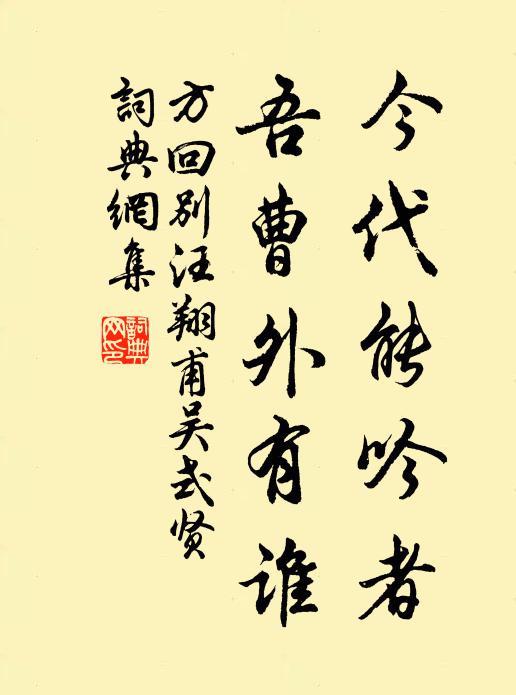 今代能吟者
吾曹外有谁
方回别汪翔甫吴式贤
詞典網集
詞典
网印